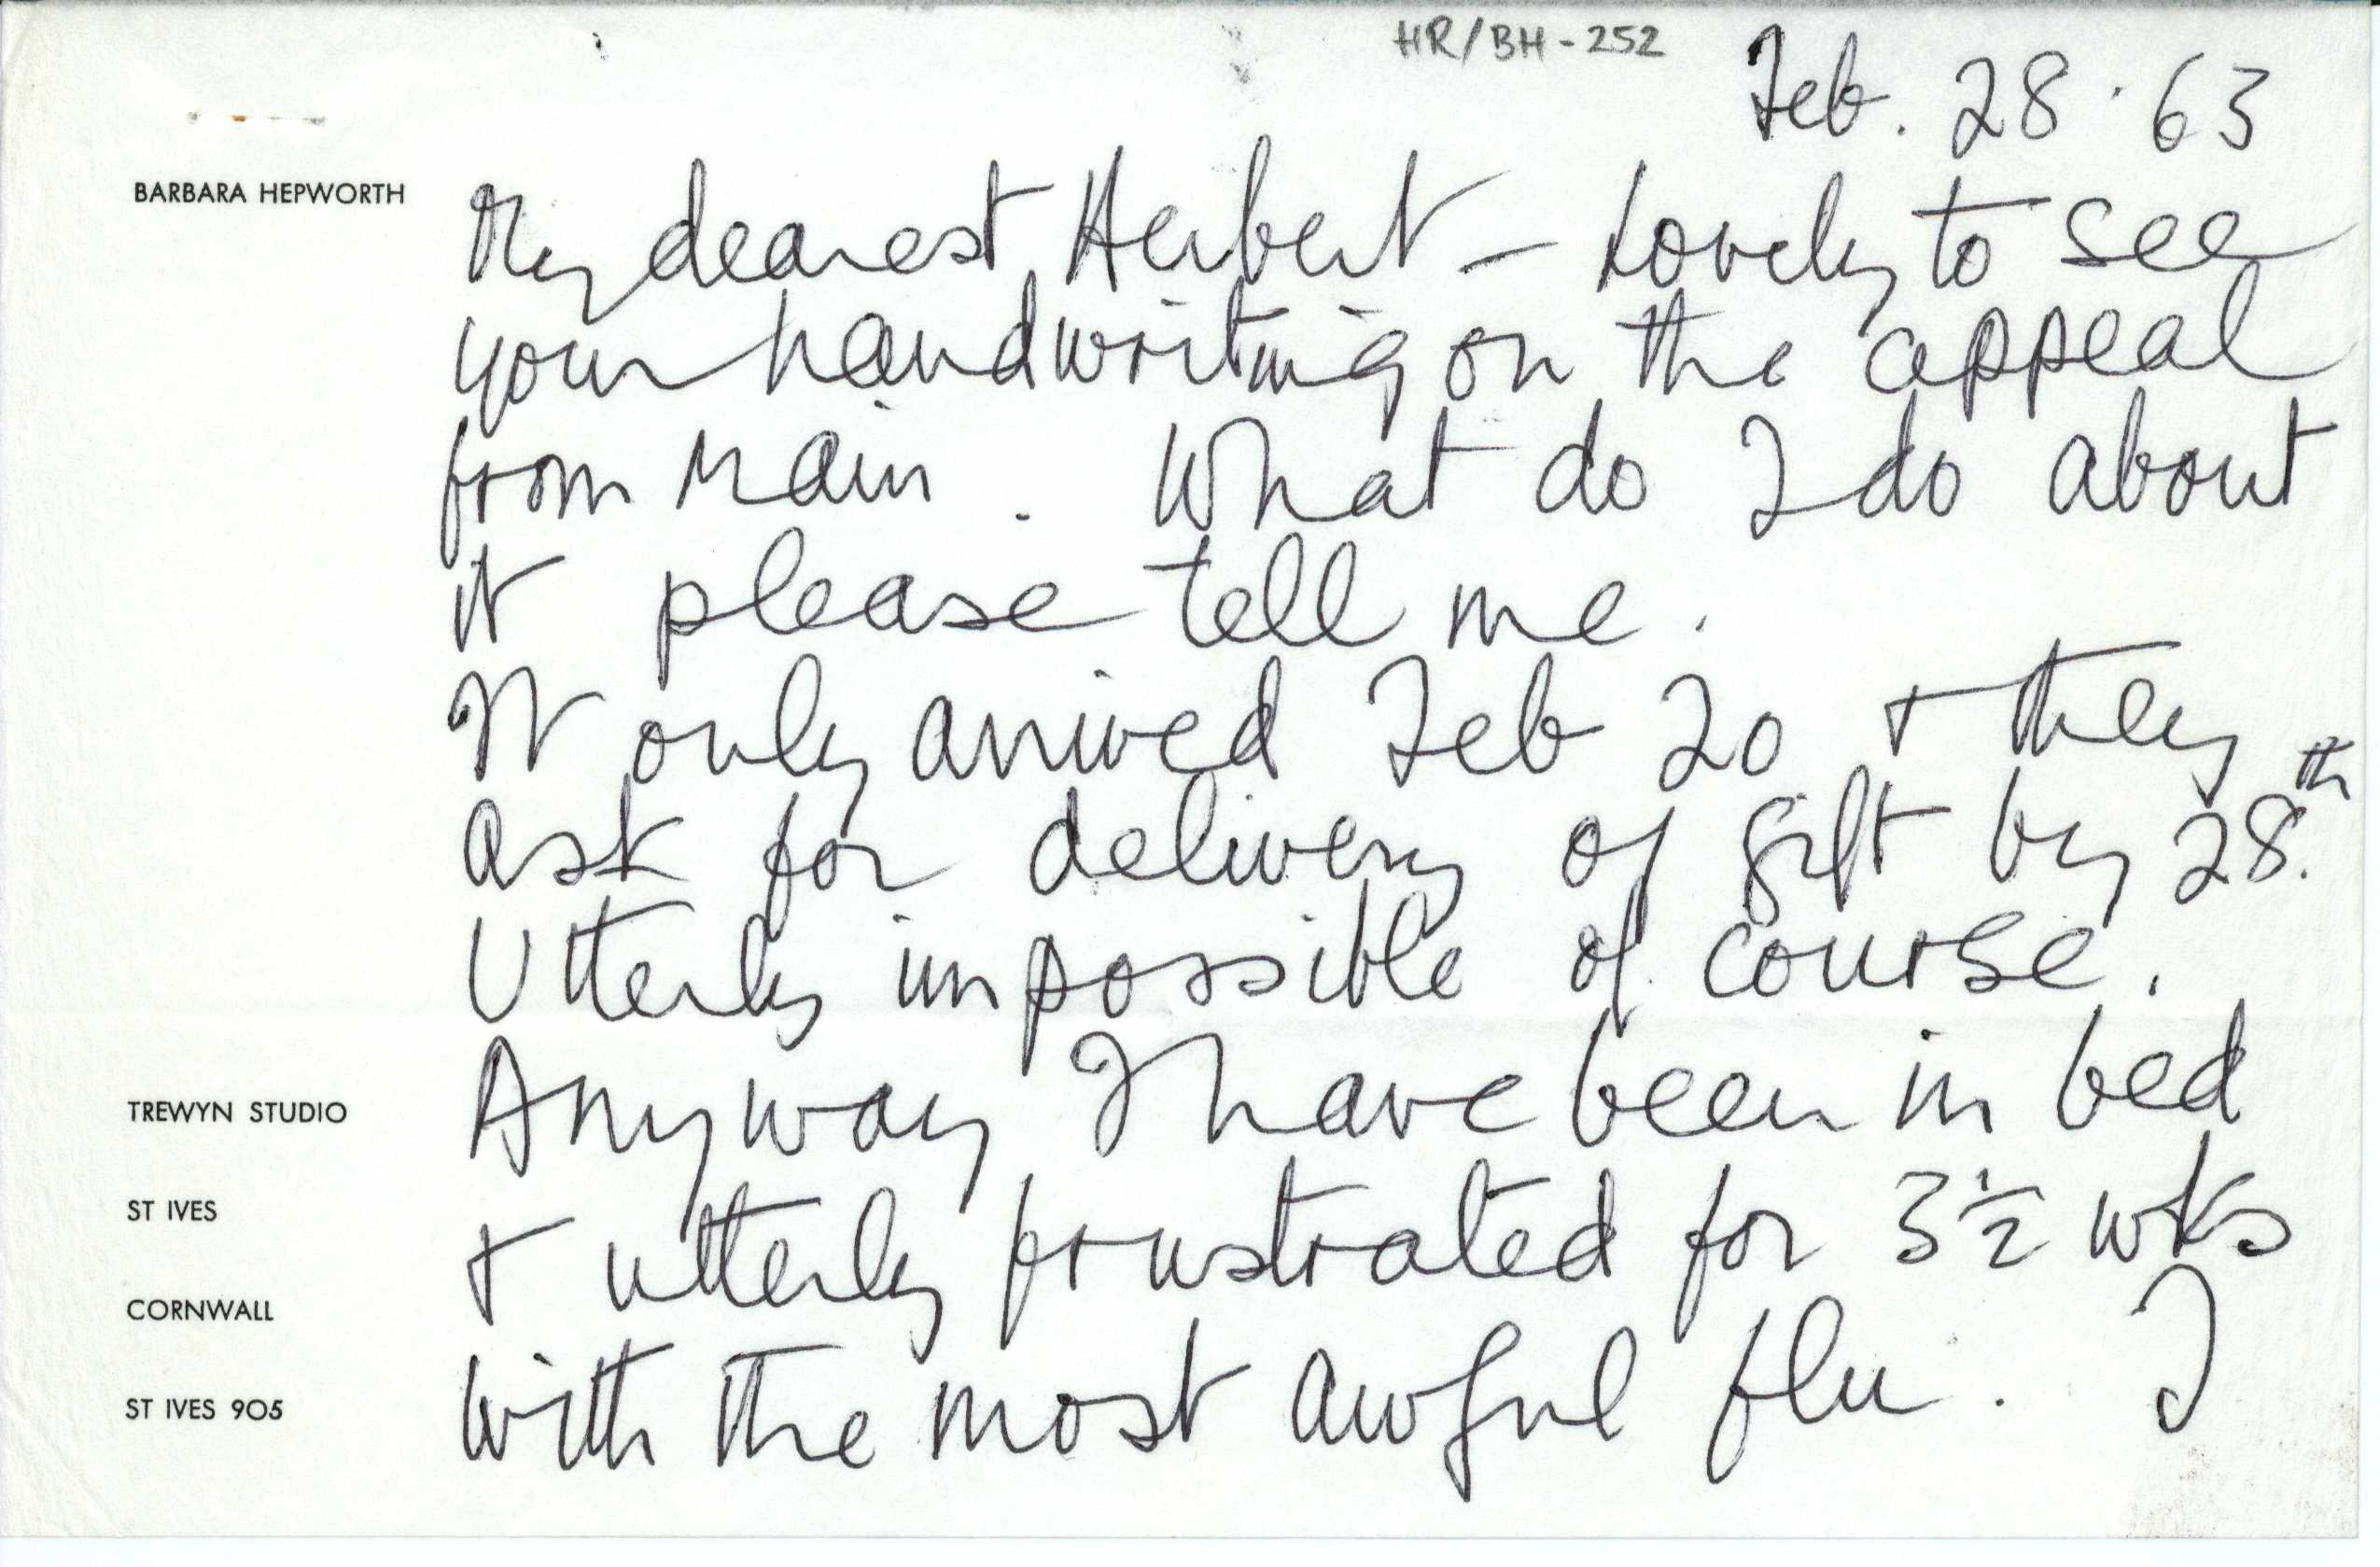 HR/BH-252
Feb. 28 · 63
BARBARA HEPWORTH
My dearest Herbert – Lovely to see
your handwriting on the appeal
from Main. What do I do about
it please tell me.
It only arrived Feb 20 + they
ask for delivery of gift by 28.th
Utterly impossible of course.
Anyway I have been in bed
+ utterly frustrated for 3½ wks
with the most awful flu. I
TREWYN STUDIO
ST IVES
CORNWALL
ST IVES 905